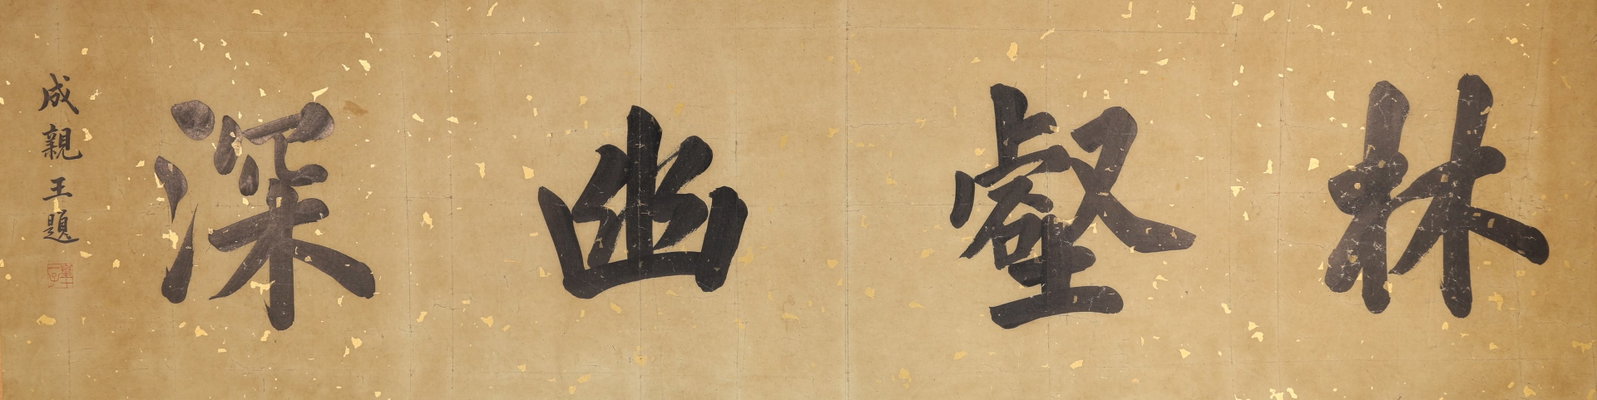 林壑幽深
成親王題